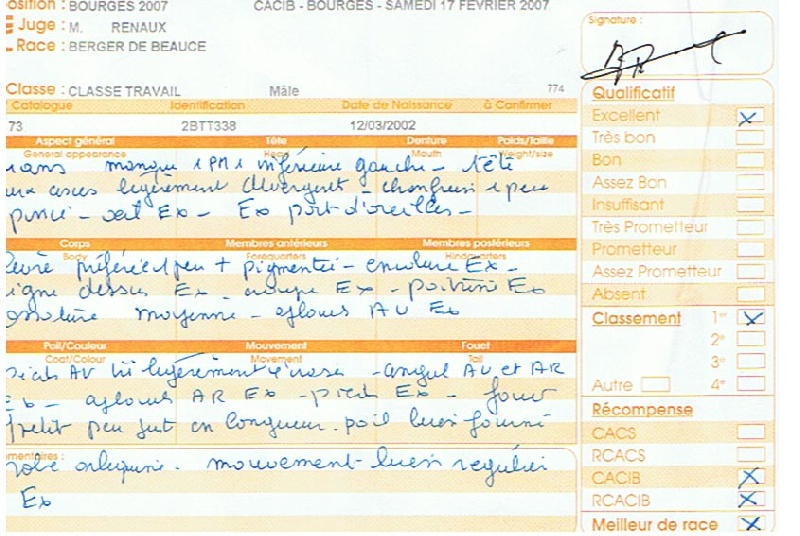 osition : BOURGES 2007 CACIB - BOURGES - SAMEDI 17 FEVRIER 2007
Juge : M. RENAUX
Race : BERGER DE BEAUCE
Signature :
Classe : CLASSE TRAVAIL Mâle 774
Catalogue Identification Date de Naissance à Confirmer
73 2BTT338 12/03/2002
Aspect général Tête Denture Poids/Taille
General appearance Head Mouth Weight/size
ans manque 1 PM1 inférieure gauche - tête
aux axes légèrement divergent - chanfrein 1 peu
- oeil Ex - Ex port d'oreilles -
Corps Membres antérieurs Membres postérieurs
Body Forequarters Hindquarters
préféré 1 peu + pigmentée - encolure Ex -
igne dessus Ex - croupe Ex - poitrine Ex
ossature moyenne - aplombs AV Ex
Poil/Couleur Mouvement Fouet
Coat/Colour Movement Tail
pieds AV légèrement - angul AV et AR
Ex - aplombs AR Ex - pieds Ex - fouet
petit peu just en longueur. poil bien fourni
mentaires :
robe arlequine. mouvement bien régulier
Ex
Qualificatif
Excellent X
Très bon
Bon
Assez Bon
Insuffisant
Très Prometteur
Prometteur
Assez Prometteur
Absent
Classement 1er X
2e
3e
Autre 4e
Récompense
CACS
RCACS
CACIB X
RCACIB X
Meilleur de race X